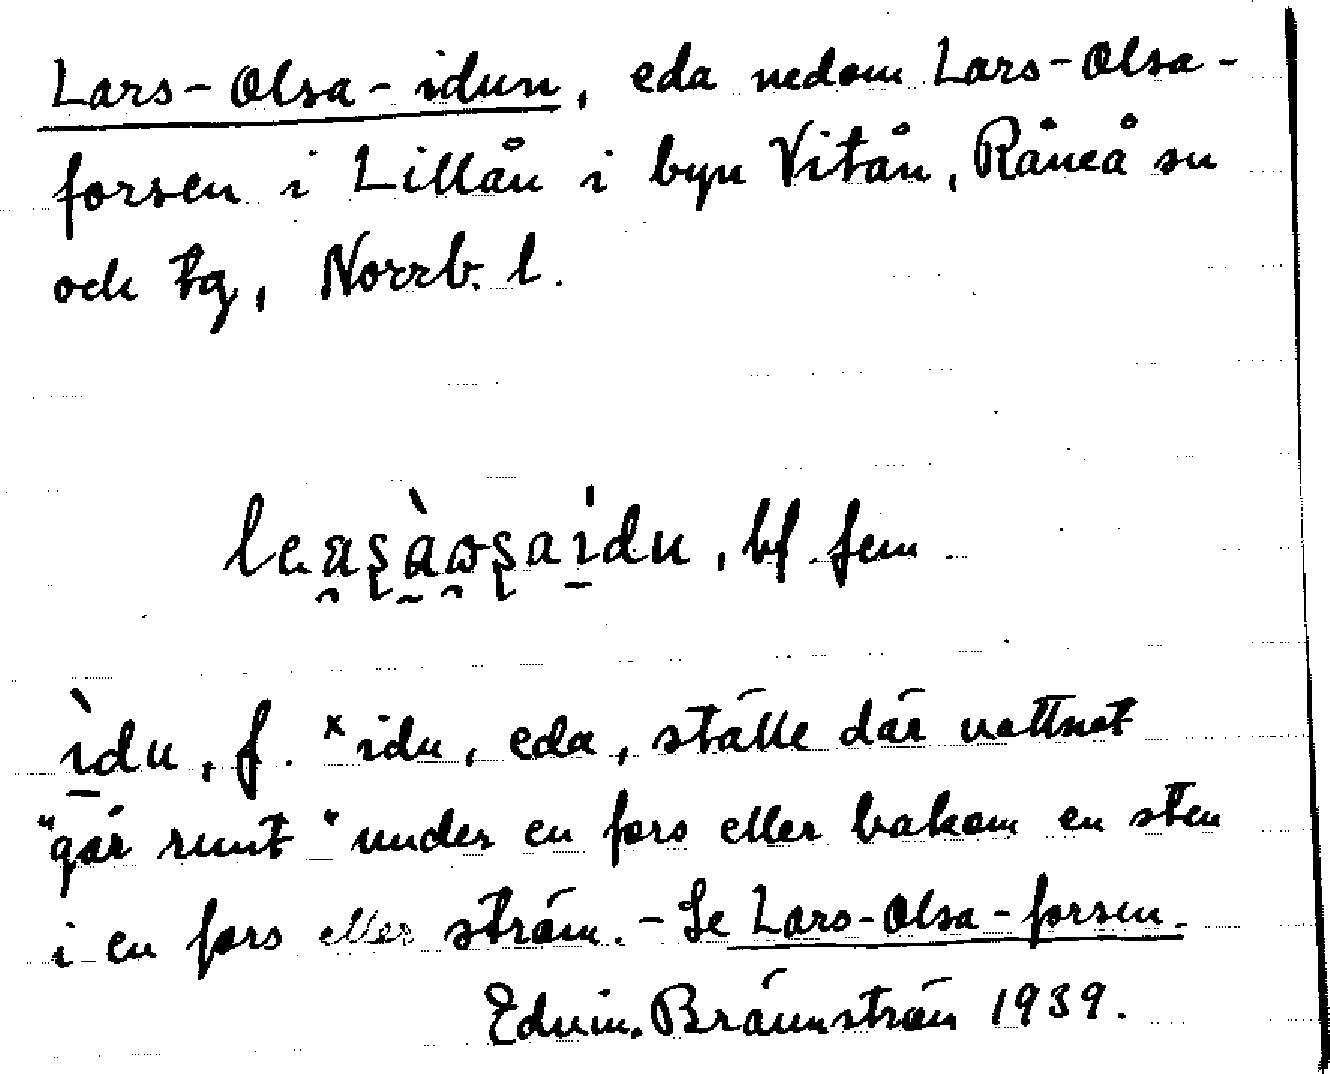 Lars-Olsa-idun, eda nedom Lars-Olsa-
forsen i Lillån i byn Vitån, Råneå sn
och tg, Norrb. l.
bf fem
ìdu, f. ˣidu, eda, ställe där vattnet
"går runt" under en fors eller bakom en sten
i en fors eller ström. - Se Lars-Olsa-forsen.
Edvin Brännström 1939.